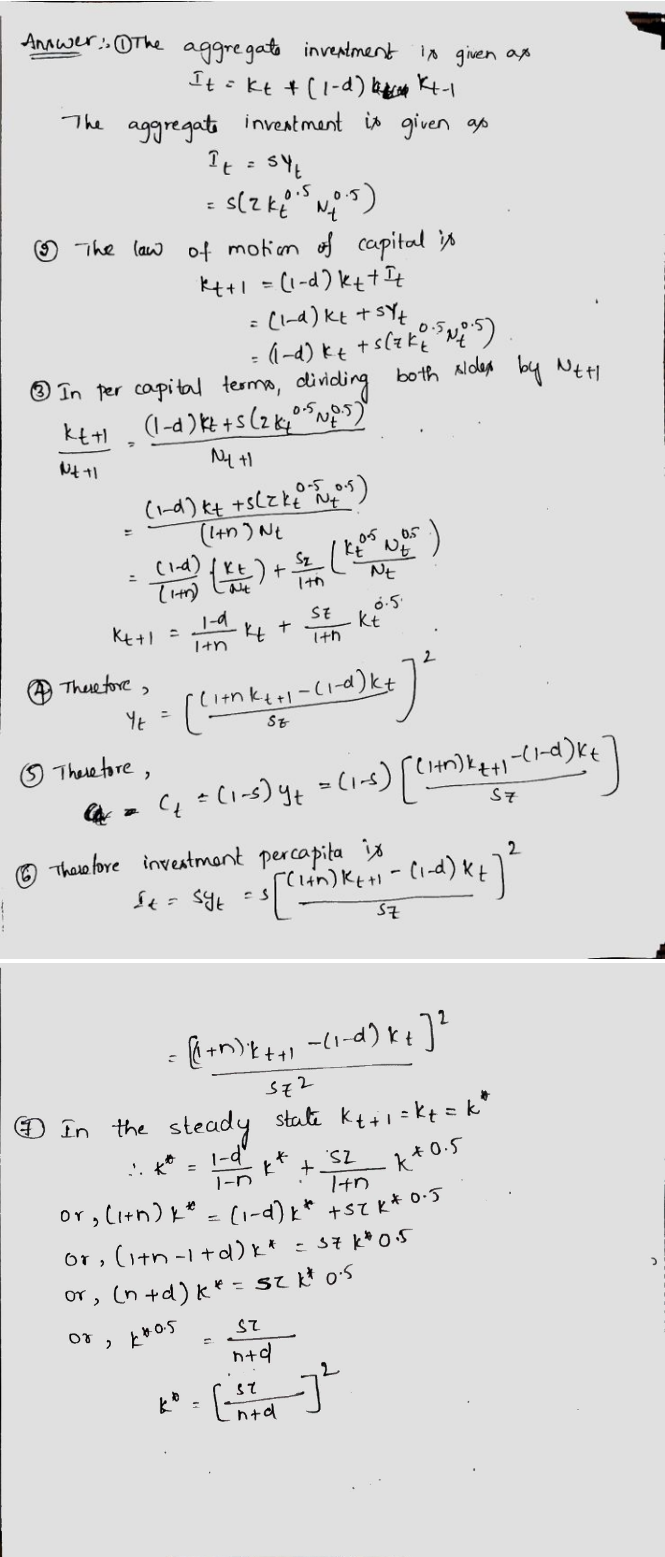 Answer:. ① The aggregate investment is given as
It = Kt + (1-d) Kt-1
The aggregate investment is given as
It = sYt
= s(z Kt^0.5 Nt^0.5)
② The law of motion of capital is
Kt+1 = (1-d) Kt + It
= (1-d) Kt + sYt
= (1-d) Kt + s(z Kt^0.5 Nt^0.5)
③ In per capital terms, dividing both sides by Nt+1
Kt+1 / Nt+1 = (1-d) Kt + s(z Kt^0.5 Nt^0.5) / Nt+1
= (1-d) Kt + s(z Kt^0.5 Nt^0.5) / (1+n) Nt
= (1-d)/(1+n) (Kt/Nt) + sz/1+n (Kt^0.5 Nt^0.5 / Nt)
Kt+1 = 1-d/1+n kt + sz/1+n kt^0.5
④ Therefore,
yt = [(1+n kt+1 - (1-d) kt / sz]^2
⑤ Therefore,
Ct = (1-s) yt = (1-s) [(1+n) kt+1 - (1-d) kt / sz]
⑥ Therefore investment percapita is
It = syt = s [(1+n) kt+1 - (1-d) kt / sz]^2
= [(1+n) kt+1 - (1-d) kt]^2 / sz^2
⑦ In the steady state kt+1 = kt = k*
∴ k* = 1-d/1-n k* + sz/1+n k*0.5
or, (1+n) k* = (1-d) k* + sz k*0.5
or, (1+n-1+d) k* = sz k*0.5
or, (n+d) k* = sz k*0.5
or, k*0.5 = sz / n+d
k* = [sz / n+d]^2